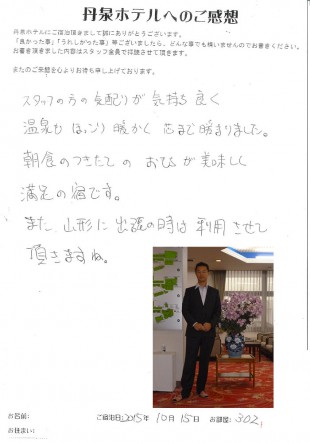 丹泉ホテルへのご感想
丹泉ホテルにご宿泊頂きまして誠にありがとうございます。
「良かった事」「うれしかった事」等ございましたら、どんな事でも構いませんのでお書きください。
お書き頂きました内容はスタッフ全員で拝読させて頂きます。
またのご来館を心よりお待ち申し上げております。
スタッフの方の気配りが気持ち良く
温泉も ほっこり 暖かく 芯まで暖まりました。
朝食のつきたての おもちが美味しく
満足の宿です。
また 山形に出張の時は利用させて
頂きますね。
お名前:
ご宿泊日 2015年 10月 15日 お部屋: 302
お住まい: